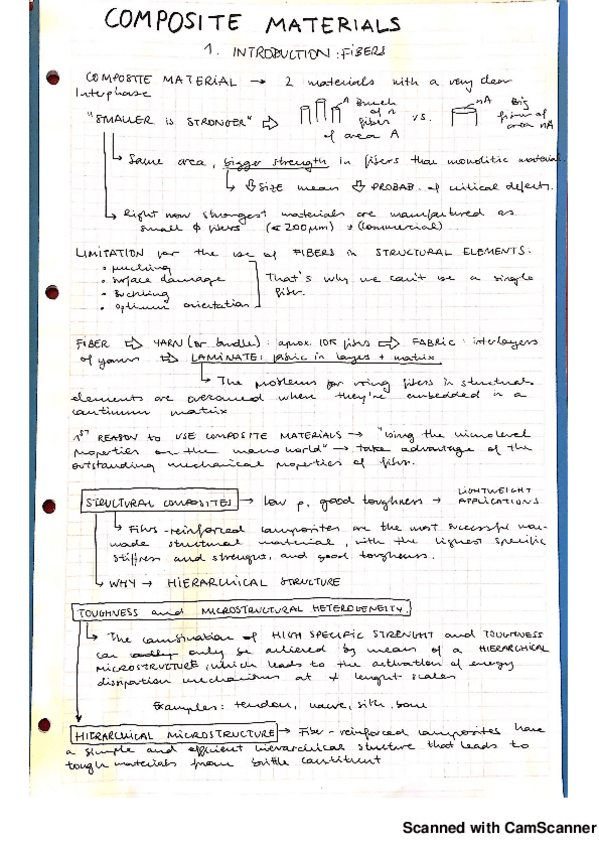 COMPOSITE MATERIALS
1. INTRODUCTION: FIBERS
COMPOSITE MATERIAL → 2 materials with a very clear
Interphase
"SMALLER IS STRONGER" ⇨ A Bunch of n fiber of area A vs. nA Big fiber of area nA
Same area, bigger strength in fibers than monolitic material.
⇩ Size means ⇩ PROBAB. of critical defects.
Right now strongest materials are manufactured as
small ϕ fibers (< 200 μm) (commercial)
LIMITATION for the use of FIBERS in STRUCTURAL ELEMENTS.
• surface damage
• Buckling
• Optimum orientation
That's why we can't use a single
fiber.
FIBER ⇨ YARN (or bundle): aprox. 10K fibers ⇨ FABRIC: interlayers
of yarns ⇨ LAMINATE: fabric in layers + matrix
The problems for using fibers in structural
elements are overcomed when they're embedded in a
continuum matrix
1ST REASON to USE COMPOSITE MATERIALS → "Using the microlevel
properties on the macro world" → take advantage of the
outstanding mechanical properties of fibers.
STRUCTURAL COMPOSITES → low ρ, good toughness → LIGHTWEIGHT
APPLICATIONS
Fiber-reinforced composites are the most successful man-
made structural material, with the highest specific
stiffness and strenght, and good toughness.
WHY → HIERARCHICAL STRUCTURE
TOUGHNESS and MICROSTRUCTURAL HETEROGENEITY.
The combination of HIGH SPECIFIC STRENGHT and TOUGHNESS
can only be achieved by means of a HIERARCHICAL
MICROSTRUCTURE, which leads to the activation of energy
dissipation mechanisms at ≠ lenght scales
Examples: tendon, nacre, silk, bone
HIERARCHICAL MICROSTRUCTURE → Fiber-reinforced composites have
a simple and efficient hierarchical structure that leads to
tough materials from brittle constituent
Scanned with CamScanner